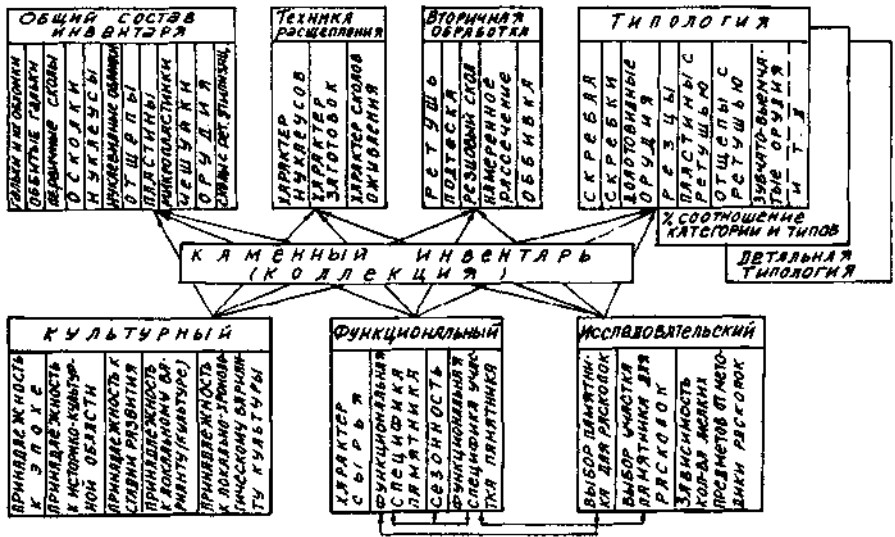 ОБЩИЙ СОСТАВ
ИНВЕНТАРЯ
ГАЛЬКИ И ИХ ОБЛОМКИ
ОББИТЫЕ ГАЛЬКИ
ПЕРВИЧНЫЕ СКОЛЫ
ОСКОЛКИ
НУКЛЕУСЫ
НУКЛЕВИДНЫЕ ОБЛОМКИ
ОТЩЕПЫ
ПЛАСТИНЫ
МИКРОПЛАСТИНКИ
ЧЕШУЙКИ
ОРУДИЯ
СКОЛЫ С РЕТ. УТИЛИЗАЦ.
ТЕХНИКА
РАСЩЕПЛЕНИЯ
ХАРАКТЕР
НУКЛЕУСОВ
ХАРАКТЕР
ЗАГОТОВОК
ХАРАКТЕР СКОЛОВ
ОЖИВЛЕНИЯ
ВТОРИЧНАЯ
ОБРАБОТКА
РЕТУШЬ
ПОДТЕСКА
РЕЗЦОВЫЙ СКОЛ
НАМЕРЕННОЕ
РАССЕЧЕНИЕ
ОББИВКА
ТИПОЛОГИЯ
СКРЕБЛА
СКРЕБКИ
ДОЛОТОВИДНЫЕ
ОРУДИЯ
РЕЗЦЫ
ПЛАСТИНЫ С
РЕТУШЬЮ
ОТЩЕПЫ С
РЕТУШЬЮ
ЗУБЧАТО-ВЫЕМЧА-
ТЫЕ ОРУДИЯ
И Т Д
% СООТНОШЕНИЕ
КАТЕГОРИИ И ТИПОВ
ДЕТАЛЬНАЯ
ТИПОЛОГИЯ
КАМЕННЫЙ ИНВЕНТАРЬ
(КОЛЛЕКЦИЯ)
КУЛЬТУРНЫЙ
ПРИНАДЛЕЖНОСТЬ
К ЭПОХЕ
ПРИНАДЛЕЖНОСТЬ
К ИСТОРИКО-КУЛЬТУР-
НОЙ ОБЛАСТИ
ПРИНАДЛЕЖНОСТЬ К
СТАДИИ РАЗВИТИЯ
ПРИНАДЛЕЖНОСТЬ
К ЛОКАЛЬНОМУ ВА-
РИАНТУ (КУЛЬТУРЕ)
ПРИНАДЛЕЖНОСТЬ
К ЛОКАЛЬНО-ХРОНОЛО-
ГИЧЕСКОМУ ВАРИАН-
ТУ КУЛЬТУРЫ
ФУНКЦИОНАЛЬНЫЙ
ХАРАКТЕР
СЫРЬЯ
ФУНКЦИОНАЛЬНАЯ
СПЕЦИФИКА
ПАМЯТНИКА
СЕЗОННОСТЬ
ФУНКЦИОНАЛЬНАЯ
СПЕЦИФИКА УЧАС-
ТКА ПАМЯТНИКА
ИССЛЕДОВАТЕЛЬСКИЙ
ВЫБОР ПАМЯТНИ-
КА ДЛЯ РАСКОПОК
ВЫБОР УЧАСТКА
ПАМЯТНИКА ДЛЯ
РАСКОПОК
ЗАВИСИМОСТЬ
КОЛ-ВА МЕЛКИХ
ПРЕДМЕТОВ ОТ МЕТО-
ДИКИ РАСКОПОК